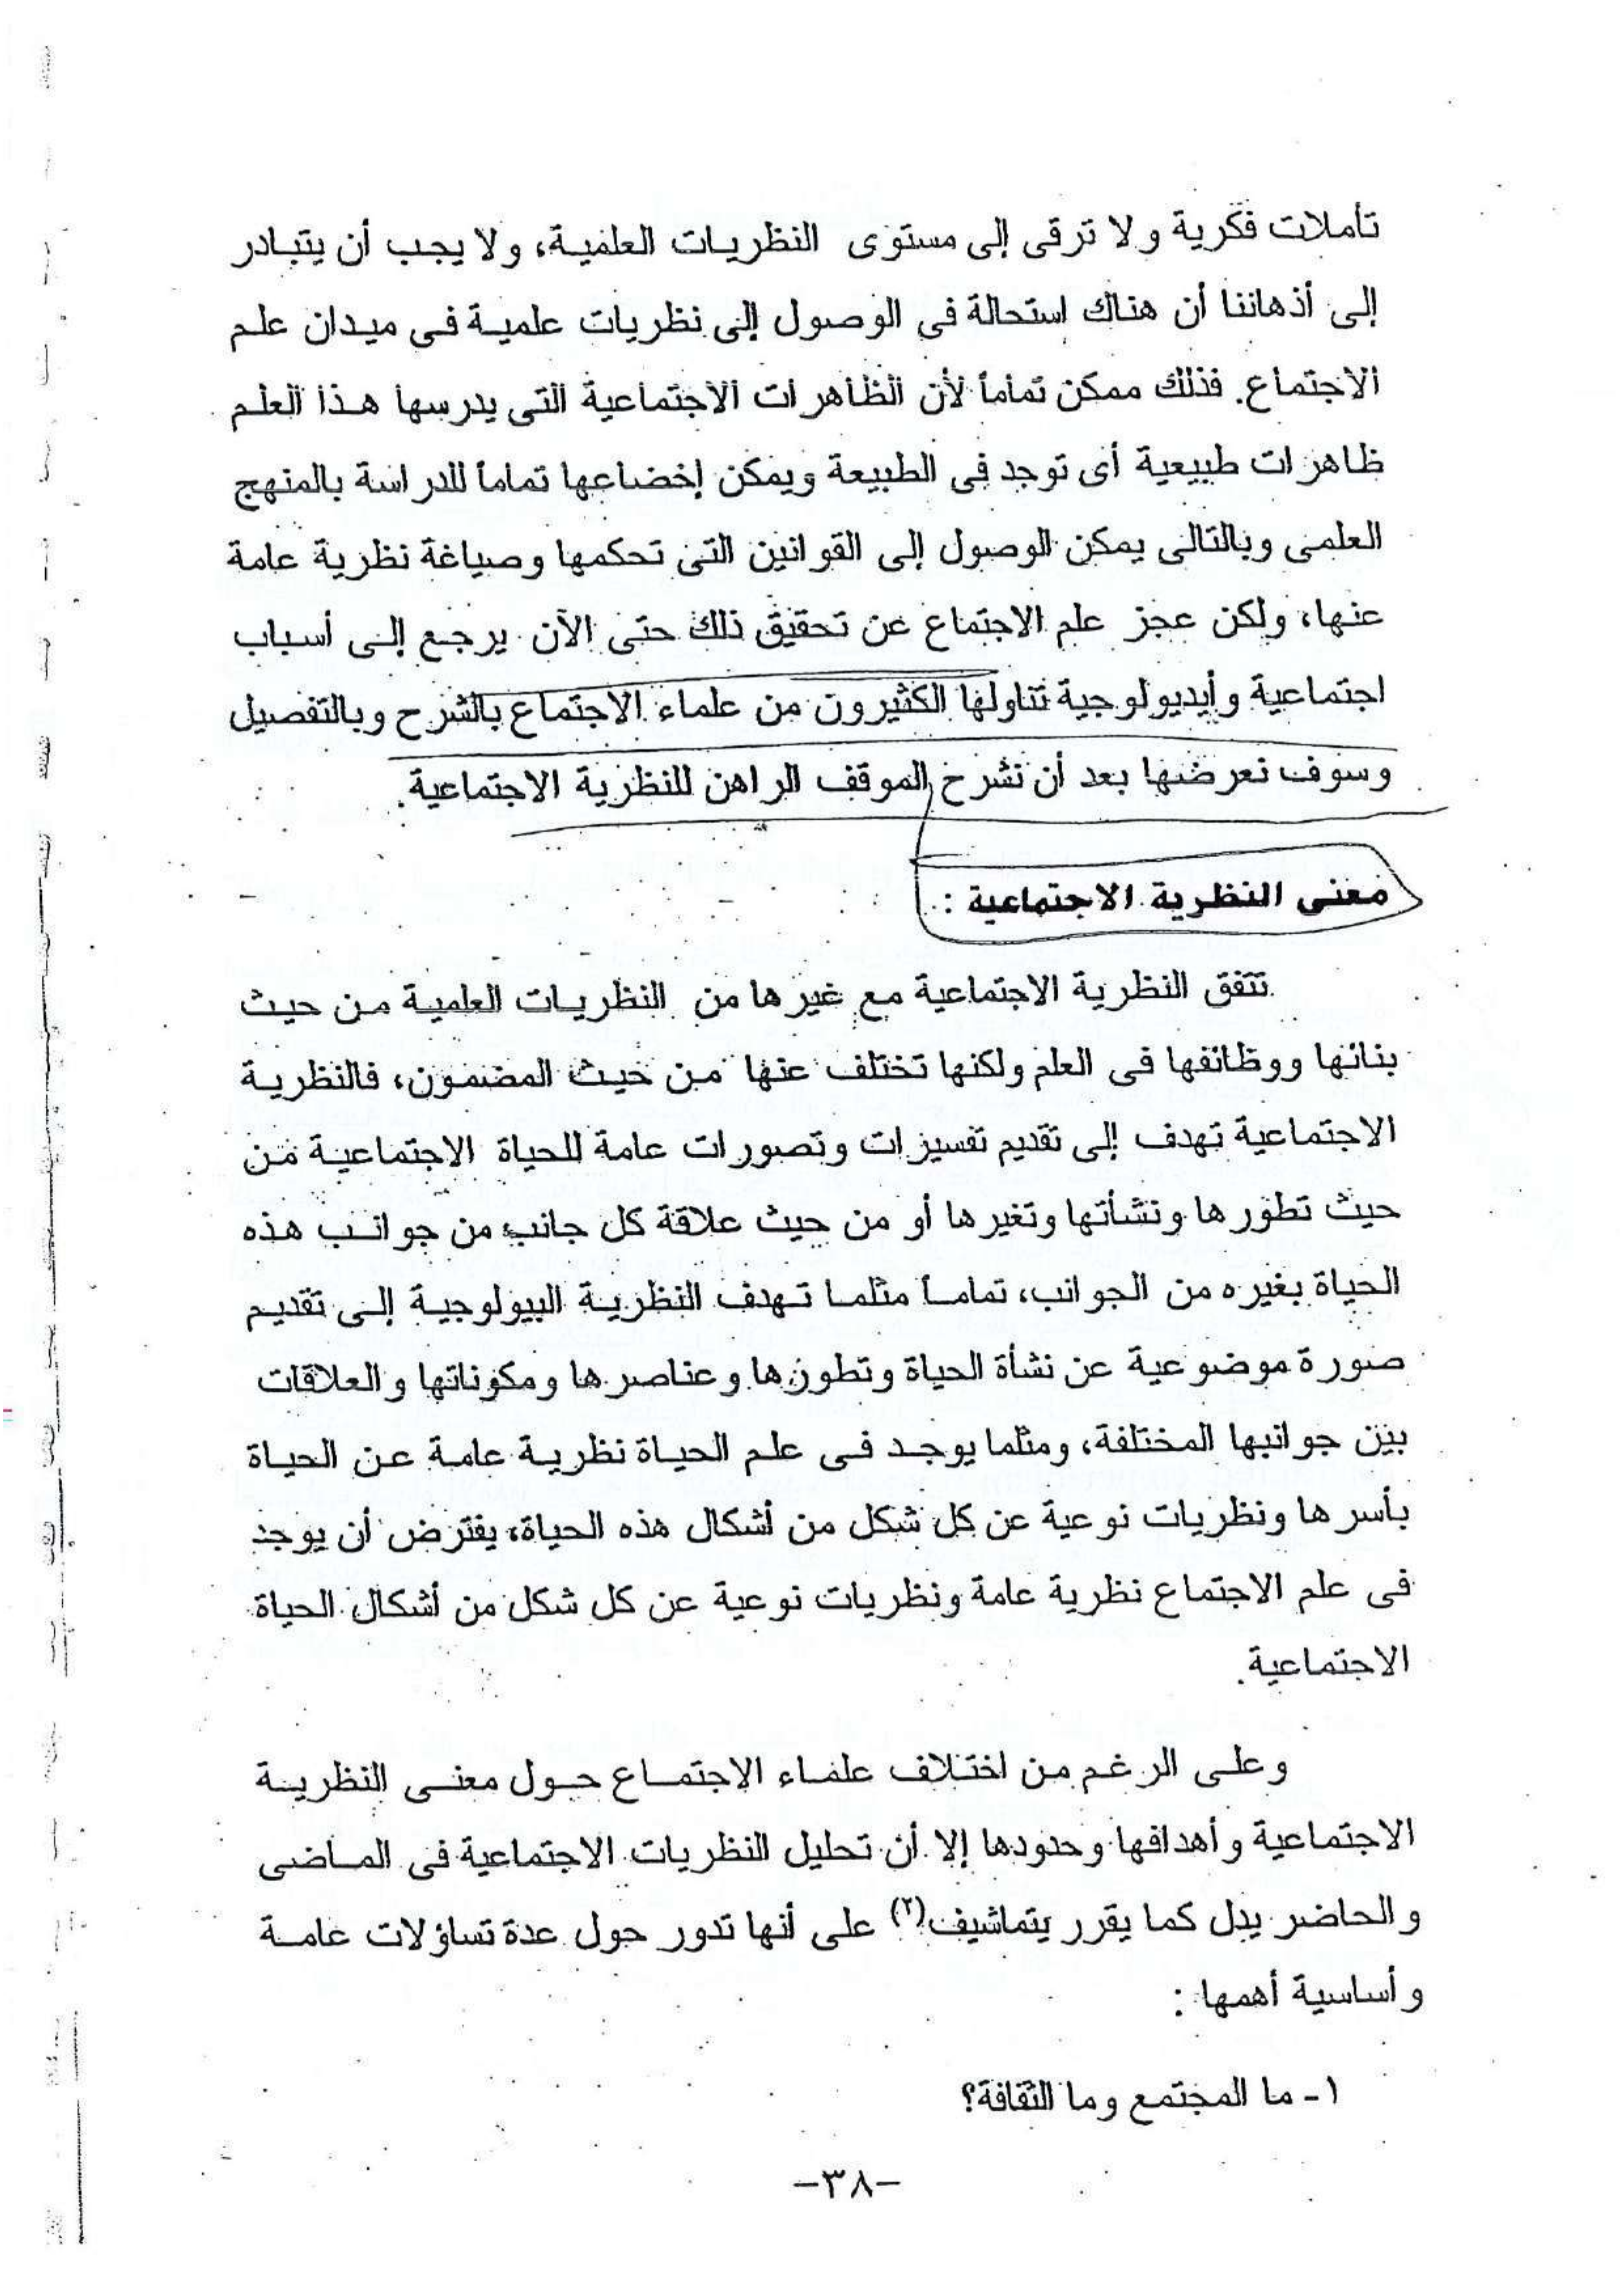 تأملات فكرية ولا ترقى إلى مستوى النظريات العلمية، ولا يجب أن يتبادر
إلى أذهاننا أن هناك استحالة فى الوصول إلى نظريات علمية فى ميدان علم
الاجتماع. فذلك ممكن تماماً لأن الظاهرات الاجتماعية التى يدرسها هذا العلم
ظاهرات طبيعية أى توجد فى الطبيعة ويمكن إخضاعها تماماً للدراسة بالمنهج
العلمى وبالتالى يمكن الوصول إلى القوانين التى تحكمها وصياغة نظرية عامة
عنها، ولكن عجز علم الاجتماع عن تحقيق ذلك حتى الآن يرجع إلى أسباب
اجتماعية وأيديولوجية تناولها الكثيرون من علماء الاجتماع بالشرح وبالتفصيل
وسوف نعرضها بعد أن نشرح الموقف الراهن للنظرية الاجتماعية.
معنى النظرية الاجتماعية :
تتفق النظرية الاجتماعية مع غيرها من النظريات العلمية من حيث
بنائها ووظائفها فى العلم ولكنها تختلف عنها من حيث المضمون، فالنظرية
الاجتماعية تهدف إلى تقديم تفسيرات وتصورات عامة للحياة الاجتماعية من
حيث تطورها ونشأتها وتغيرها أو من حيث علاقة كل جانب من جوانب هذه
الحياة بغيره من الجوانب، تماماً مثلما تهدف النظرية البيولوجية إلى تقديم
صورة موضوعية عن نشأة الحياة وتطورها وعناصرها ومكوناتها والعلاقات
بين جوانبها المختلفة، ومثلما يوجد فى علم الحياة نظرية عامة عن الحياة
بأسرها ونظريات نوعية عن كل شكل من أشكال هذه الحياة، يفترض أن يوجد
فى علم الاجتماع نظرية عامة ونظريات نوعية عن كل شكل من أشكال الحياة
الاجتماعية.
وعلى الرغم من اختلاف علماء الاجتماع حول معنى النظرية
الاجتماعية وأهدافها وحدودها إلا أن تحليل النظريات الاجتماعية فى الماضى
والحاضر يدل كما يقرر يتماشيف(٢) على أنها تدور حول عدة تساؤلات عامة
وأساسية أهمها :
١- ما المجتمع وما الثقافة؟
-٣٨-